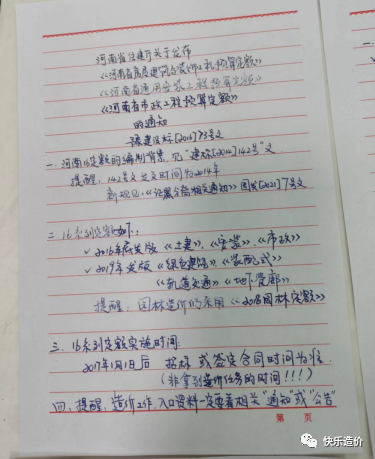 河南省住建厅关于发布
《河南省房屋建筑与装饰工程预算定额》
《河南省通用安装工程预算定额》
《河南省市政工程预算定额》
的通知
豫建设标[2016]73号文
一、河南16定额的编制背景 见“建标[2014]142号”文
提醒:142号文发文时间为2014年
《 通知》国发[2021]7号文
二、16系列定额如下:
✓2016年底发版《土建》、《安装》、《市政》
✓2019年发版《绿色建筑》《装配式》
《轨道交通》《地下管廊》
提醒:园林造价仍采用《2018园林定额》
三、16系列定额实施时间:
2017年1月1日后 招标 或签定合同时间为准
(非拿到造价任务的时间!!!)
四、提醒:造价工作,入口资料一定要看相关“通知”或“公告”
第 页
快乐造价